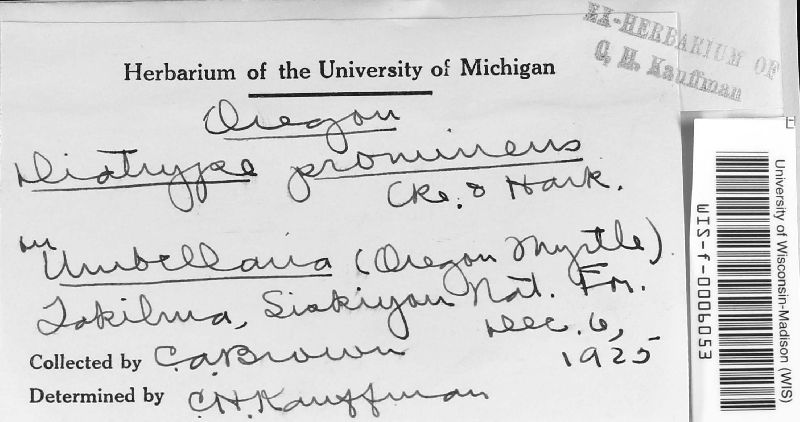 EX-HERBARIUM OF
C. H. Kauffman
Herbarium of the University of Michigan
Oregon
Diatrype prominens
Cke. & Hark.
on
Umbellaria (Oregon Myrtle)
Takilma, Siskiyou Nat. For.
Dec. 6,
1925
Collected by C. A. Brown
Determined by C. H. Kauffman
University of Wisconsin-Madison (WIS)
WIS-f-0006053